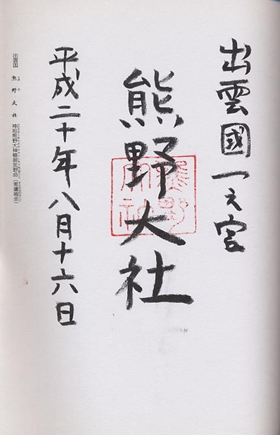 出雲國一之宮
熊野大社
平成二十年八月十六日
出雲国 熊野大社